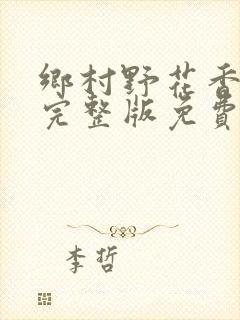 鄉村野花香
完整版免費
李哲